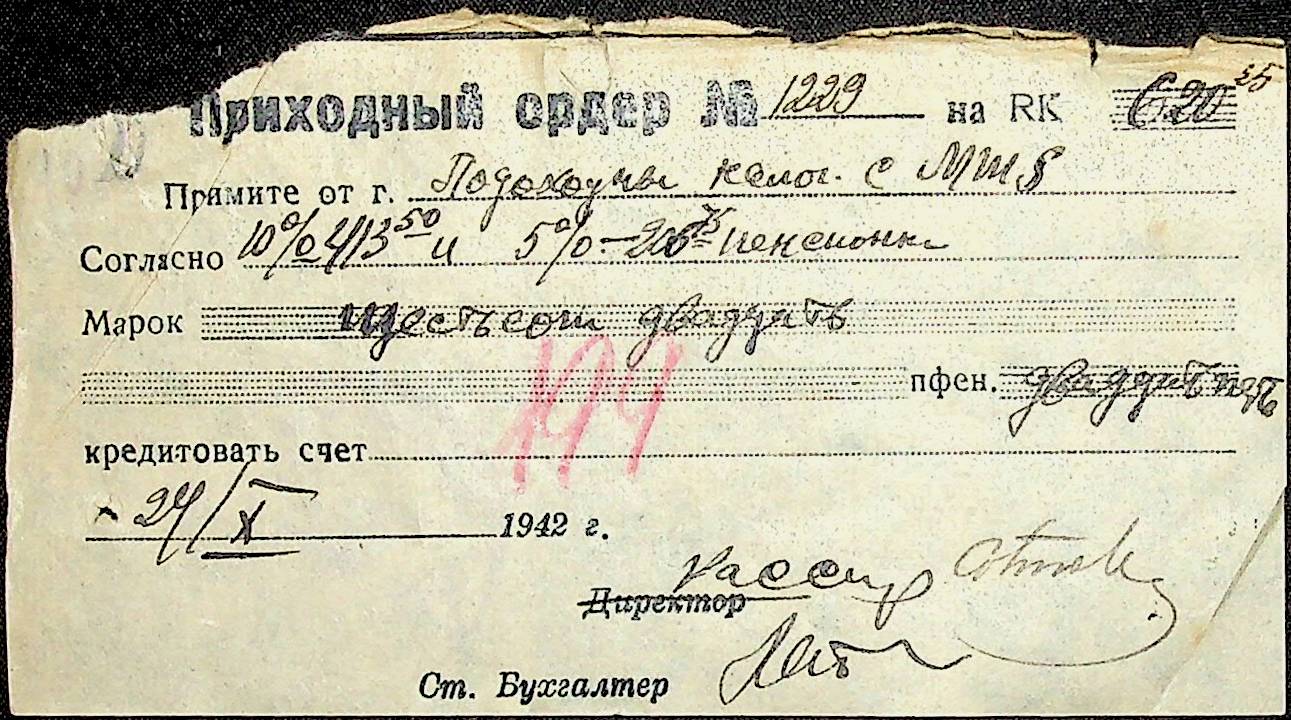 Приходный ордер № 1229 на RK 620 25
Примите от г. Подоходный налог с
Согласно 10% 413 50 и 5% - 206 75 пенсион
Марок Шестьсот двадцать
пфен. двадцать пять
194
кредитовать счет
24/X 1942 г.
Кассир
Директор
Ст. Бухгалтер